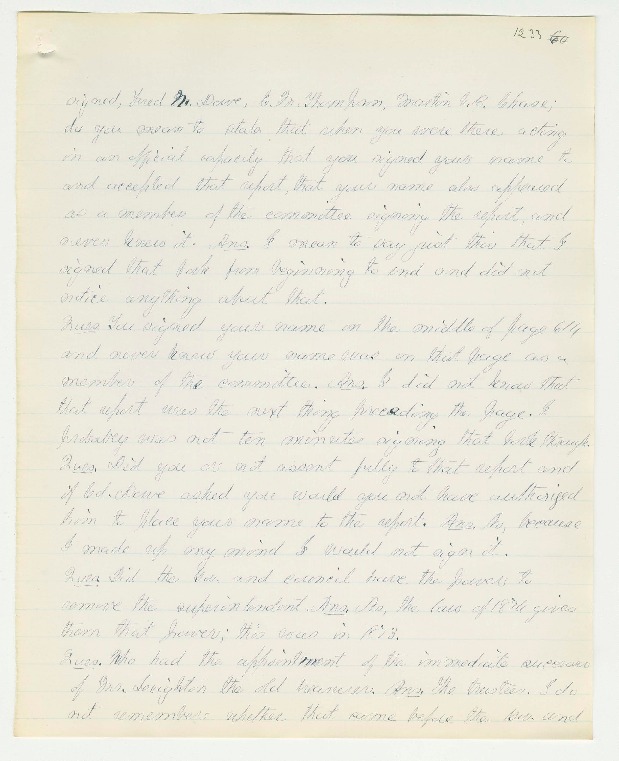 1233
signed, Fred N. Dowe, E. Fr. Thompson, Martin V. R. Chase;
do you mean to state that when you were there acting
in an official capacity that you signed your name to
and accepted that report, that your name also appeared
as a member of the committee signing the report, and
never knew it. Ans. I mean to say just this that I
signed that book from beginning to end and did not
notice anything about that.
Ques. You signed your name in the middle of page 614
and never knew your name was on that page as a
member of the committee. Ans. I did not know that
that report was the next thing preceding the page. I
probably was not ten minutes signing that book through.
Ques. Did you or not assent fully to that report and
if Ed. Dowe asked you would you not have authorized
him to place your name to the report. Ans. No, because
I made up my mind I would not sign it.
Ques. Did the Gov. and council have the power to
remove the superintendent. Ans. No, the law of 1874 gives
them that power; this was in 1873.
Ques. Who had the appointment of the immediate successor
of Mr. Leighton the old treasurer. Ans. The trustees. I do
not remember whether that came before the Gov. and